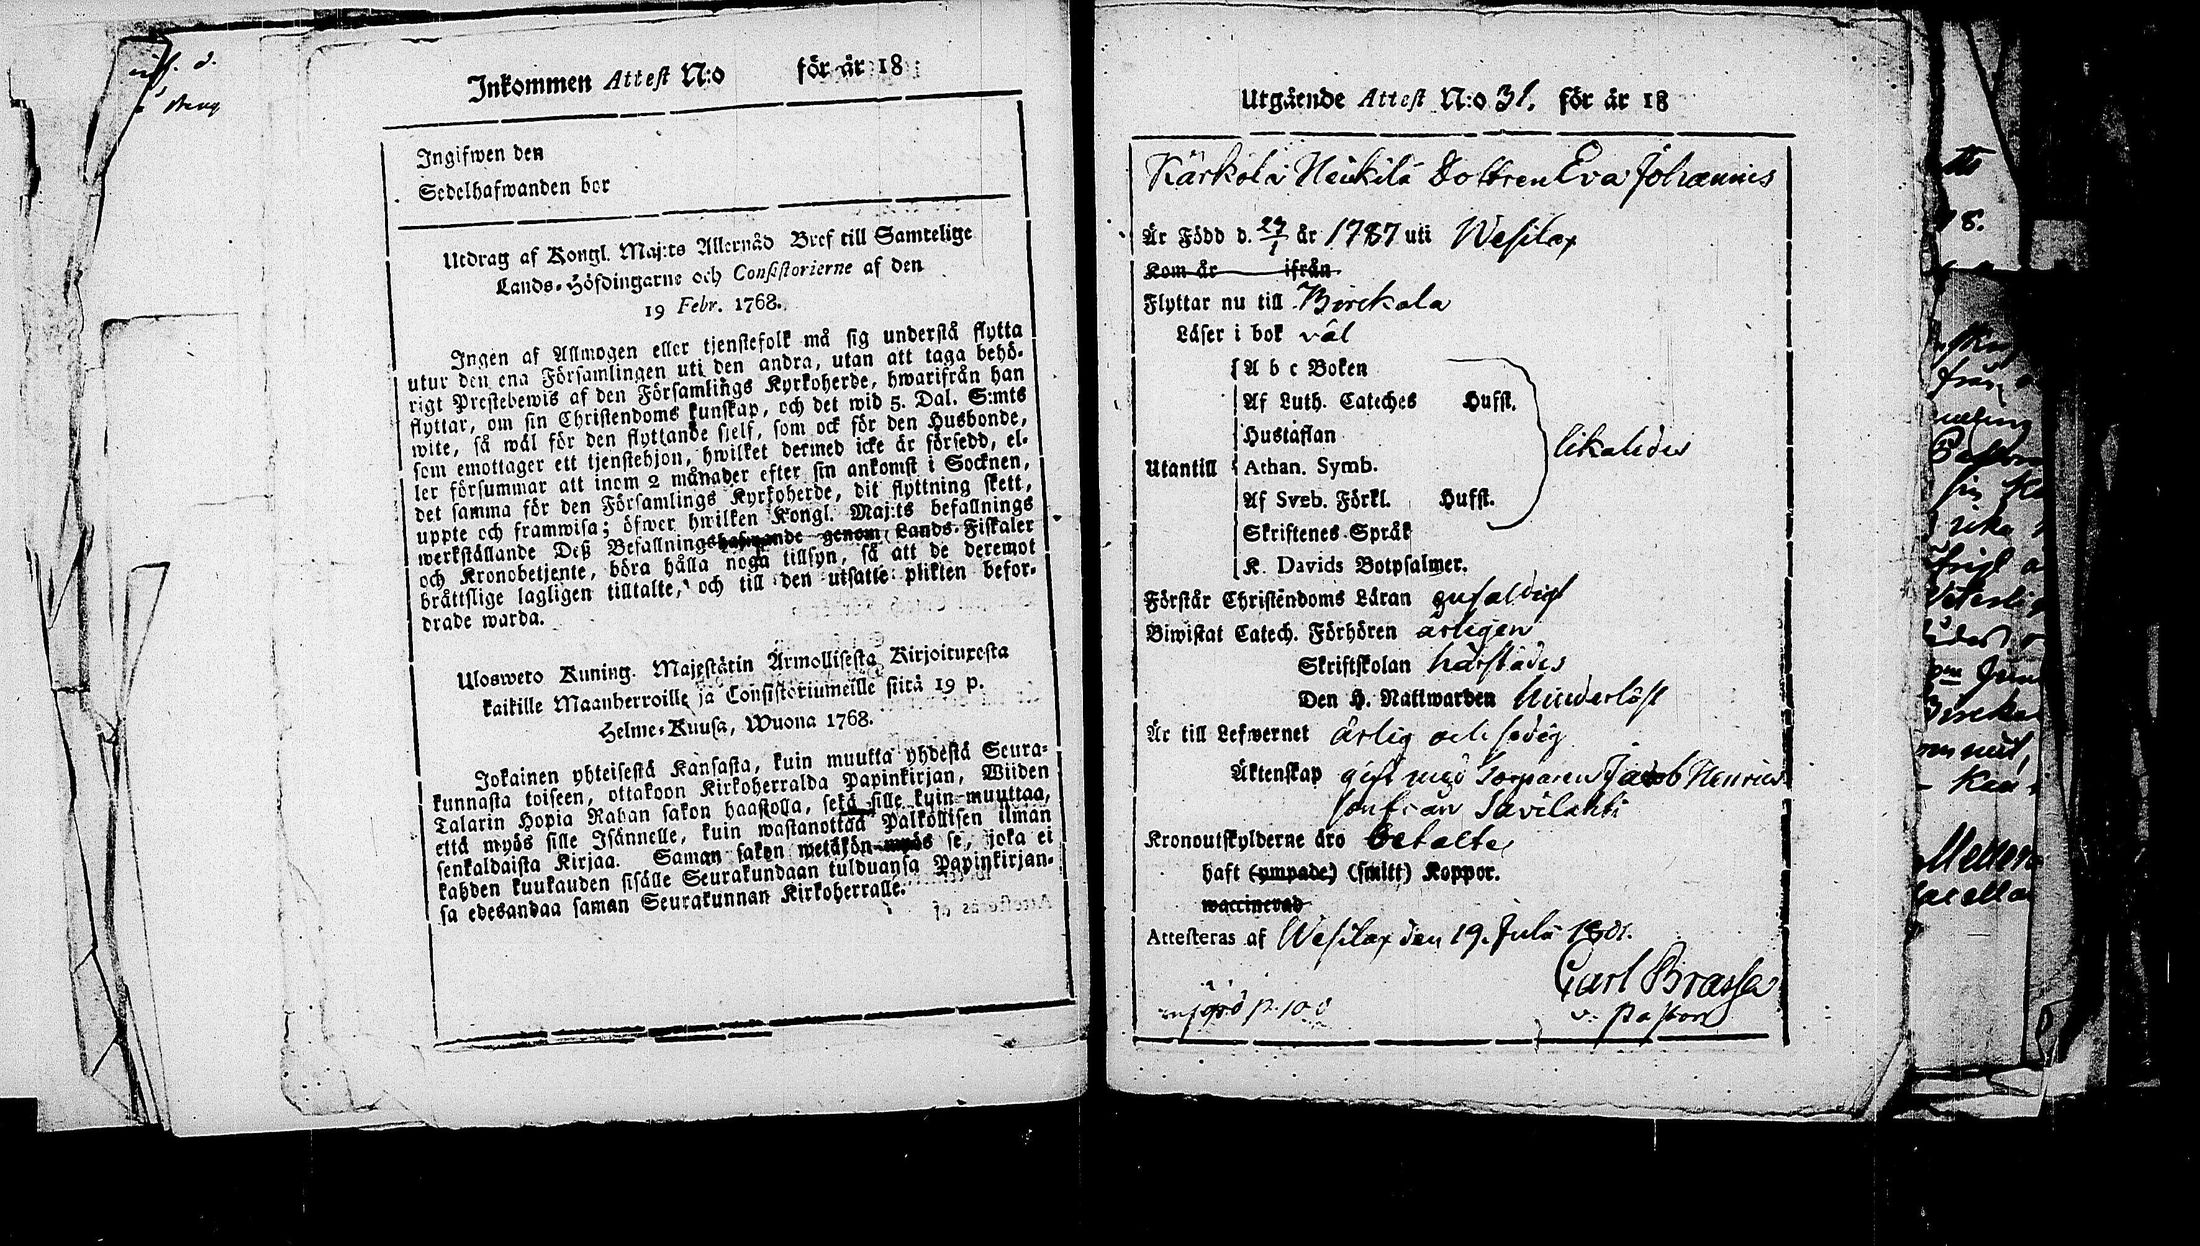 Inkommen Attest N:o för år 18
Ingifwen den
Sedelhafwanden bor
Utdrag af Kongl. Maj:ts Allernåd Bref till Samtelige
Lands-Höfdingarne och Consistorierne af den
19 Febr. 1768.
Ingen af Allmogen eller tjenstefolk må sig understå flytta
utur den ena Församlingen uti den andra, utan att taga behö-
rigt Prestebewis af den Församlings Kyrkoherde, hwarifrån han
flyttar, om sin Christendoms kunskap, och det wid 5. Dal. S:mts
wite, så wäl för den flyttande sjelf, som ock för den Husbonde,
som emottager ett tjenstehjon, hwilket dermed icke är försedd, el-
ler försummar att inom 2 månader efter sin ankomst i Socknen,
det samma för den Församlings Kyrkoherde, dit flyttning skett,
uppte och framwisa; öfwer hwilken Kongl. Maj:ts befallnings
werkställande Deß Befallningshafwande genom Lands-Fiskaler
och Kronobetjente, böra hålla noga tillsyn, så att de deremot
bråttslige lagligen tilltalte, och till den utsatte plikten befor-
drade warda.
Ulosweto Kuning. Majestätin Armollisesta Kirjoituxesta
kaikille Maanherroille ja Consistoriumeille siitä 19 p.
Helme-Kuusa, Wuona 1768.
Jokainen yhteisestä Kansasta, kuin muutta yhdestä Seura-
kunnasta toiseen, ottakoon Kirkoherralda Papinkirjan, Wiiden
Talarin Hopia Rahan sakon haastolla, sekä sille kuin muuttaa,
että myös sille Isännelle, kuin wastanottaa Palkollisen ilman
senkaldaista Kirjaa. Saman sakon wetäkön myös se, joka ei
kahden kuukauden sisälle Seurakundaan tulduansa Papinkirjan-
sa edesandaa saman Seurakunnan Kirkoherralle.
Utgående Attest N:o 31. för år 18
Kärkola Heikilä Dottren Eva Johannis
Är Född d. 27/1 år 1787 uti Wesilax
Kom år ifrån
Flyttar nu till Birckala
Läser i bok väl
A b c Boken
Af Luth. Cateches Husst.
Hustaflan
Utantill Athan. Symb. likaledes
Af Sveb. Förkl. Husst.
Skriftenes Språk
K. Davids Botpsalmer.
Förstår Christendoms Läran enfaldigt
Biwistat Catech. Förhören årligen
Skriftskolan härstädes
Den H. Nattwarden hinderlöst
Är till Lefwernet ärlig och sedig
Äktenskap gift med Torparen Jacob Henrics
son från Savilahti
Kronoutskylderne äro betalte
haft (ympade) (smitt) Koppor.
waccinerad
Attesteras af Wesilax den 19. Julii 1801.
Carl Brassa
v. Pastor